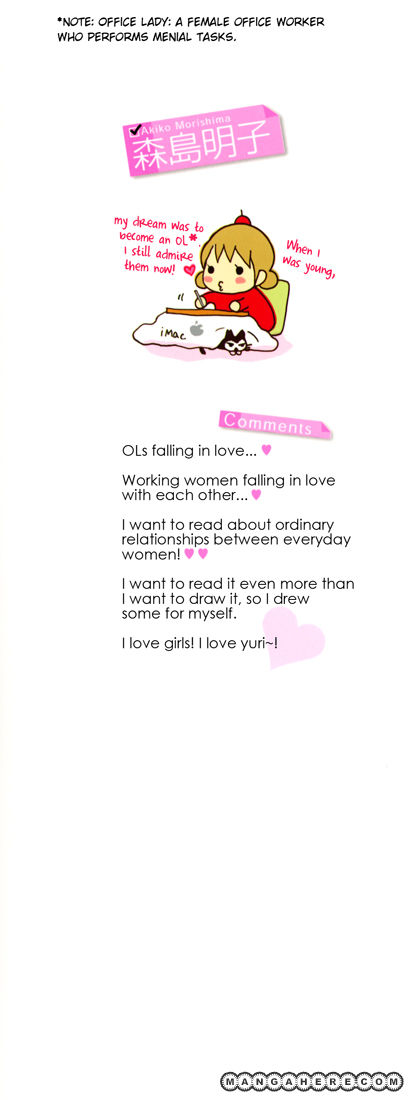 *NOTE: OFFICE LADY: A FEMALE OFFICE WORKER
WHO PERFORMS MENIAL TASKS.
Akiko Morishima
森島明子
When I
was young,
my dream was to
become an OL*.
I still admire
them now!
iMac
Comments
OLs falling in love...
Working women falling in love
with each other...
I want to read about ordinary
relationships between everyday
women!
I want to read it even more than
I want to draw it, so I drew
some for myself.
I love girls! I love yuri~!
MANGAHERE.COM